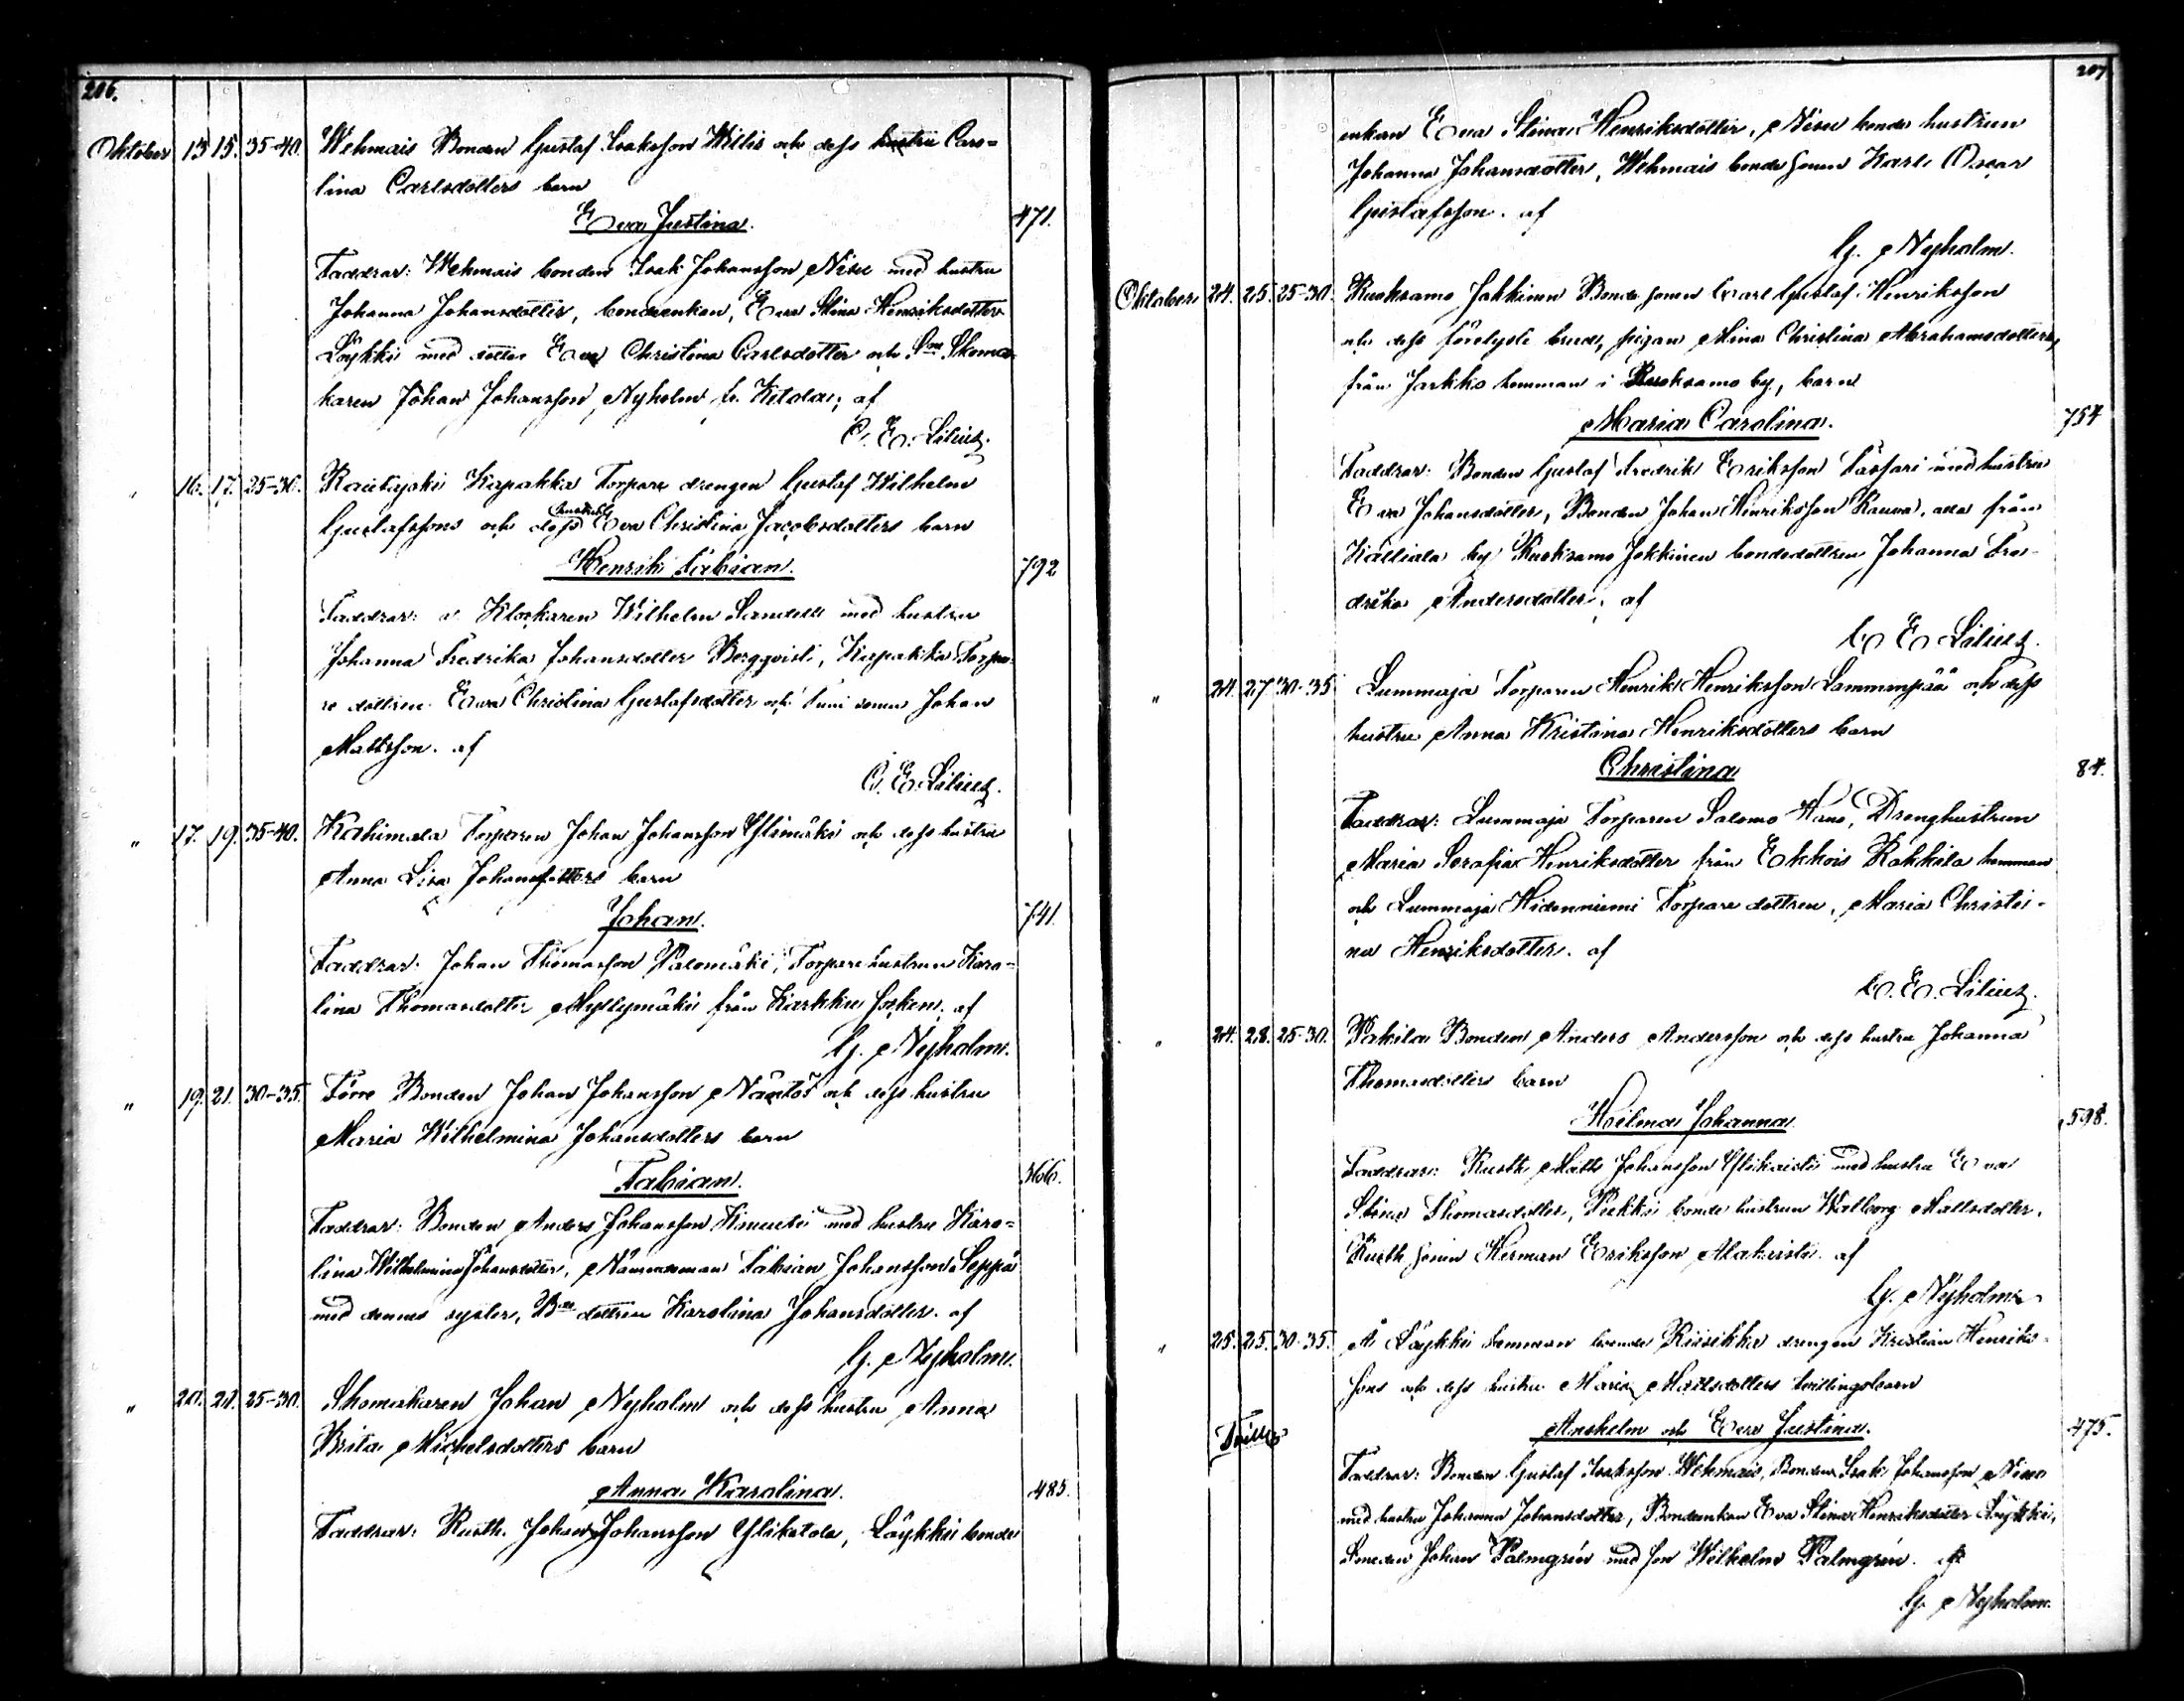 206.
Oktober 13 15. 35-40. Wehmais Bonden Gustaf Isaksson Willis och dess hustru Caro=
lina Carlsdotters barn
Eva Justina. 471.
Faddrar: Wehmais bonden Isak Johansson Nisu med hustru
Johanna Johansdotter, bondeenkan, Eva Stina Henriksdotter
Löykki med dotter Eva Christina Carlsdotter och Skoma-
karen Johan Johansson Nyholm fr. Ketola, af
C. E. Lilius.
" 16. 17. 25-30. Rautajoki Kapakka Torpare drengen Gustaf Wilhelm
Gustafssons och dess hustru Eva Christina Jacobsdotters barn
Henrik Fabian. 792
Faddrar: Klockaren Wilhelm Sandell med hustru
Johanna Fredrika Johansdotter Bergqvist, Kapakka Torpa-
re dottren Eva Christina Gustafsdotter och sonen Johan
Mattsson. af
C. E. Lilius.
" 17. 19. 35-40. Kahimala Torparen Johan Johansson Ylimäki och dess hustru
Anna Lisa Johansdotters barn
Johan. 741.
Faddrar: Johan Thomasson Palomäki, Torpare hustrun Karo=
lina Thomasdotter Myllymäki från Karkku socken. af
G. Nyholm.
" 19. 21. 30-35. Törre Bonden Johan Johansson och dess hustru
Maria Wilhelmina Johansdotters barn
Fabian. 366.
Faddrar: Bonden Anders Johansson med hustru Karo=
lina Wilhelmina Johansdotter, Nämndeman Fabian Johansson Seppä
med dennes syster, dottren Karolina Johansdotter. af
G. Nyholm.
" 20. 21. 25-30. Skomakaren Johan Nyholm och dess hustru Anna
Brita Michelsdotters barn
Anna Karolina. 485.
Faddrar: Rusth. Johan Johansson Yliketola, Löykki bonde
207
enkan Eva Stina Henriksdotter, Nisu bonde hustrun
Johanna Johansdotter, Wehmais bonde sonen Karl Oscar
Gustafsson. af
G. Nyholm.
Oktober 24. 25. 25-30. Ruoksamo Jokkinen Bonde sonen Carl Gustaf Henriksson
och dess förelysta brud, pigan Mina Christina Abrahamsdotters,
från Jarkko hemman i Ruoksamo by, barn
Maria Carolina. 754
Faddrar: Bonden Gustaf Fredrik Eriksson Tassari med hustru
Eva Johansdotter, Bonden Johan Henriksson Rauva, alla från
Kalliala by Ruoksamo Jokkinen bondedottren Johanna Fre-
drika Andersdotter, af
C. E. Lilius.
" 24. 27 30-35 Lummaja Torparen Henrik Henriksson Lammenpää och dess
hustru Anna Kristina Henriksdotters barn
Christina 84.
Faddrar: Lummaja Torparen Salomo Kano, Drenghustrun
Maria Serafia Henriksdotter från Ekkois Rokkila hemman
och Lummaja Hidenniemi Torpare dottren, Maria Christi-
na Henriksdotter. af
C. E. Lilius.
" 24. 28. 25-30. Pakila Bonden Anders Andersson och dess hustru Johanna
Thomasdotters barn
Hilma Johanna. 598.
Faddrar: Rusth. Matts Johansson med hustru Eva
Stina Thomasdotter, Pekki bonde hustrun Walborg Mattsdotter,
Rusth. sonen Herman Eriksson. af
G. Nyholm.
" 25. 25. 30-35. Å Löykki hemman boende Riisikka drengen Kristian Henriks-
sons och dess hustru Maria Mattsdotters tvillingsbarn
Anshelm och Eva Justina. 475.
Faddrar: Bonden Gustaf Isaksson Wehmais, Bonden Isak Johansson Nisu
med hustru Johanna Johansdotter, Bondeenkan Eva Stina Henriksdotter Löykki,
Smeden Johan Palmgrén med son Wilhelm Palmgrén. af
G. Nyholm.